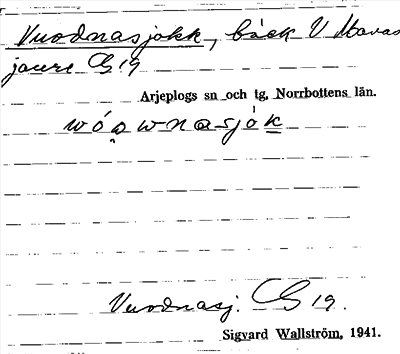 Vuodnasjokk, bäck V Mavas
jaure G 19
Arjeplogs sn och tg, Norrbottens län.
wóꞷwnasjòk
Vuodnasj. G 19.
Sigvard Wallström, 1941.